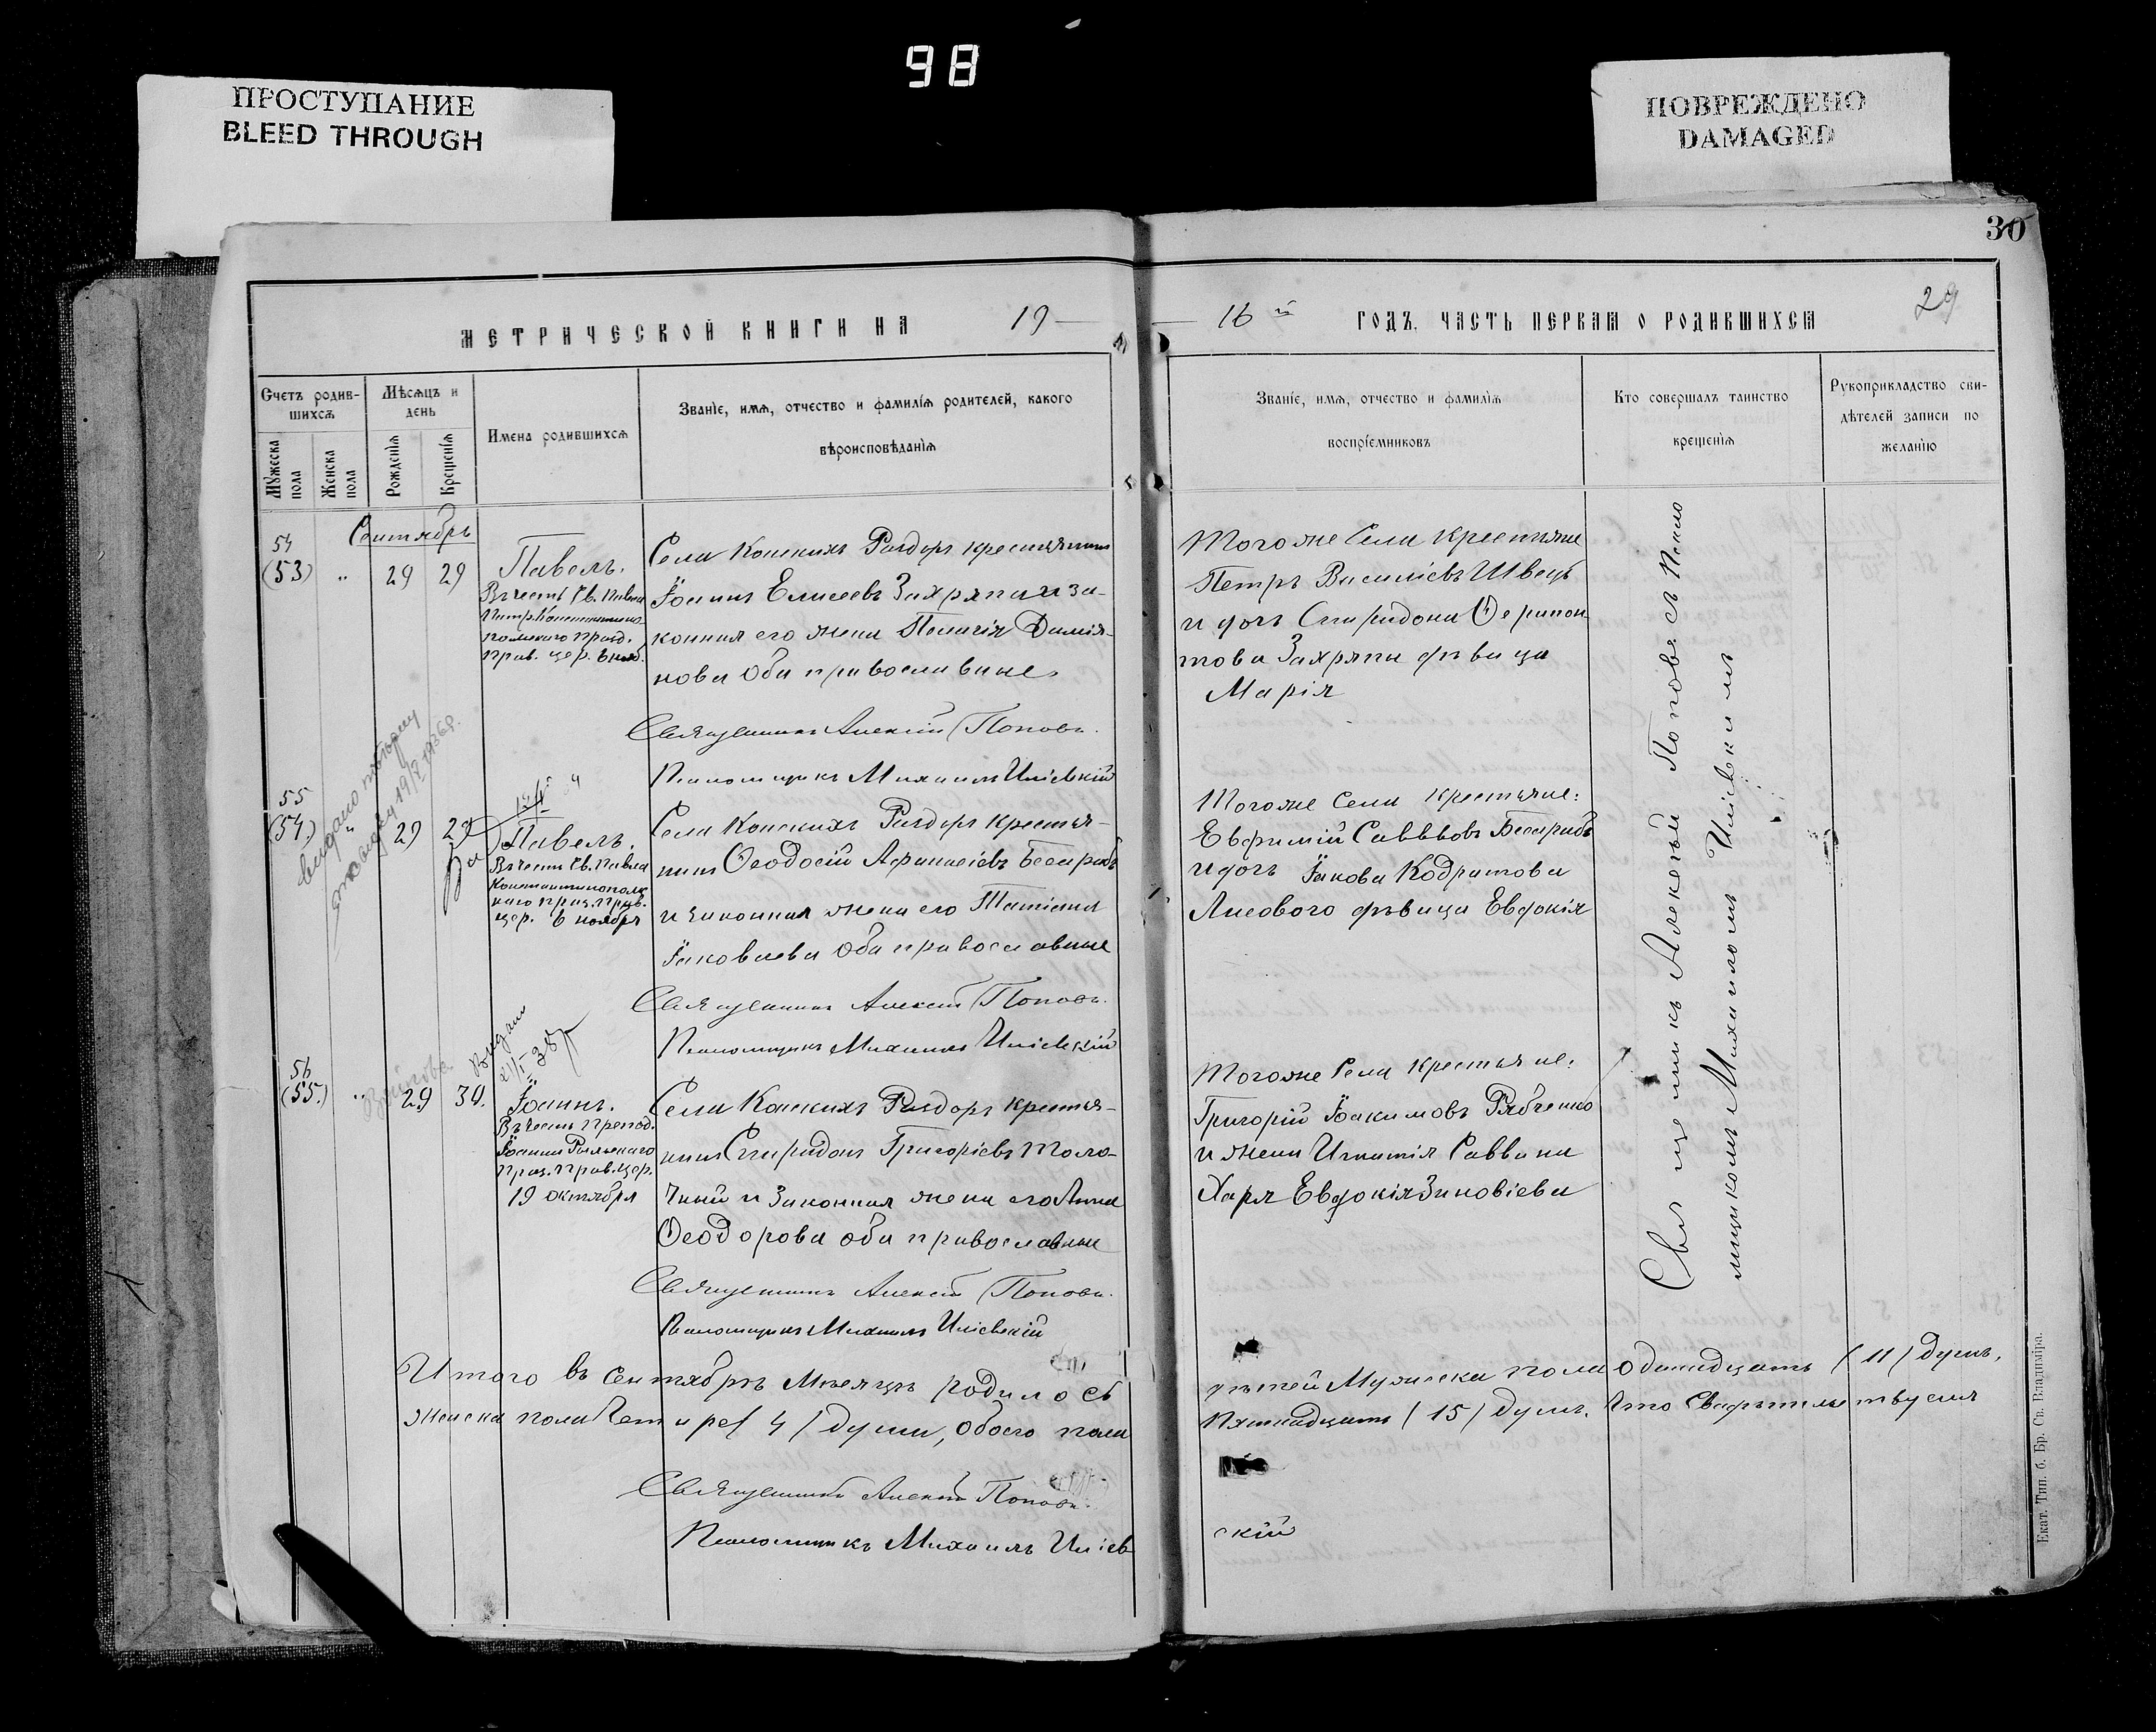 98
ПРОСТУПАНИЕ
BLEED THROUGH
ПОВРЕЖДЕНО
DAMAGED
30
29
МЕТРИЧЕСКОЙ КНИГИ НА 19
16й ГОДЪ, ЧАСТЬ ПЕРВАЯ О РОДИВШИХСЯ
Счетъ родив-
шихсѧ
Мужеска
пола
Женска
пола
Мѣсѧцъ и
день
Рожденїѧ
Крещенїѧ
Имена родившихсѧ
Званїе, имѧ, отчество и фамилїѧ родителей, какого
вѣроисповѣданїѧ
Званїе, имѧ, отчество и фамилїѧ
воспрїемниковъ
Кто совершалъ таинство
крещенїѧ
Рукоприкладство сви-
дѣтелей записи по
желанїю
Сентябрь
54
(53) " 29 29
Павелъ.
Въ честь Св. Павла
Патр. Константино
польскаго празд.
прав. цер. 6 нояб.
Села Конскихъ Раздоръ крестьянинъ
Іоаннъ Елисеевъ Захряпа и за-
конная его жена Пелагія Даміа-
нова оба православные
Священникъ Алексій Поповъ.
Псаломщикъ Михаилъ Иліевскій
Тогоже Села крестьяне
Петръ Василіевъ Швецъ
и дочь Спиридона Ферапон
това Захряпы дѣвица
Марія
55
(54.) " 29 29
Павелъ.
Въ честь Св. Павла
Константинопольс
каго праз. прав.
цер. 6 ноября
Села Конскихъ Раздоръ крестья-
нинъ Ѳеодосій Афанасіевъ
и законная жена его Татіана
Іаковлева оба православные
Священникъ Алексій Поповъ.
Псаломщикъ Михаилъ Иліевскій
Тогоже Села крестьяне:
Евфимій Саввовъ
и дочь Іакова Кодратова
Лисового дѣвица Евдокія
выдано
Выдано
56
(55.) " 29 30.
Іоаннъ.
Въ честь препод.
Іоанна Рыльскаго
праз. прав. цер.
19 октября
Села Конскихъ Раздоръ крестья-
нинъ Спиридонъ Григоріевъ Толо-
чный и законная жена его Анна
Ѳеодорова оба православные
Священникъ Алексій Поповъ.
Псаломщикъ Михаилъ Иліевскій
Тогоже Села крестьяне:
Григорій Іоакимовъ Рябченко
и жена Игнатія Саввина
Харя Евдокія Зиновіева
Священникъ Алексѣй Поповъ съ Псало
мщикомъ Михаиломъ Иліевскимъ
Итого въ Сентябрѣ Мѣсяцѣ родилось дѣтей Мужеска пола одинадцать (11) душъ,
женска пола Четыре (4) души, обоего пола Пятнадцать (15) душъ. Что Свидѣтельствуемъ
Священникъ Алексій Поповъ.
Псаломщикъ Михаилъ Иліевскій
Екат. Тип. б. Бр. Св. Владиміра.